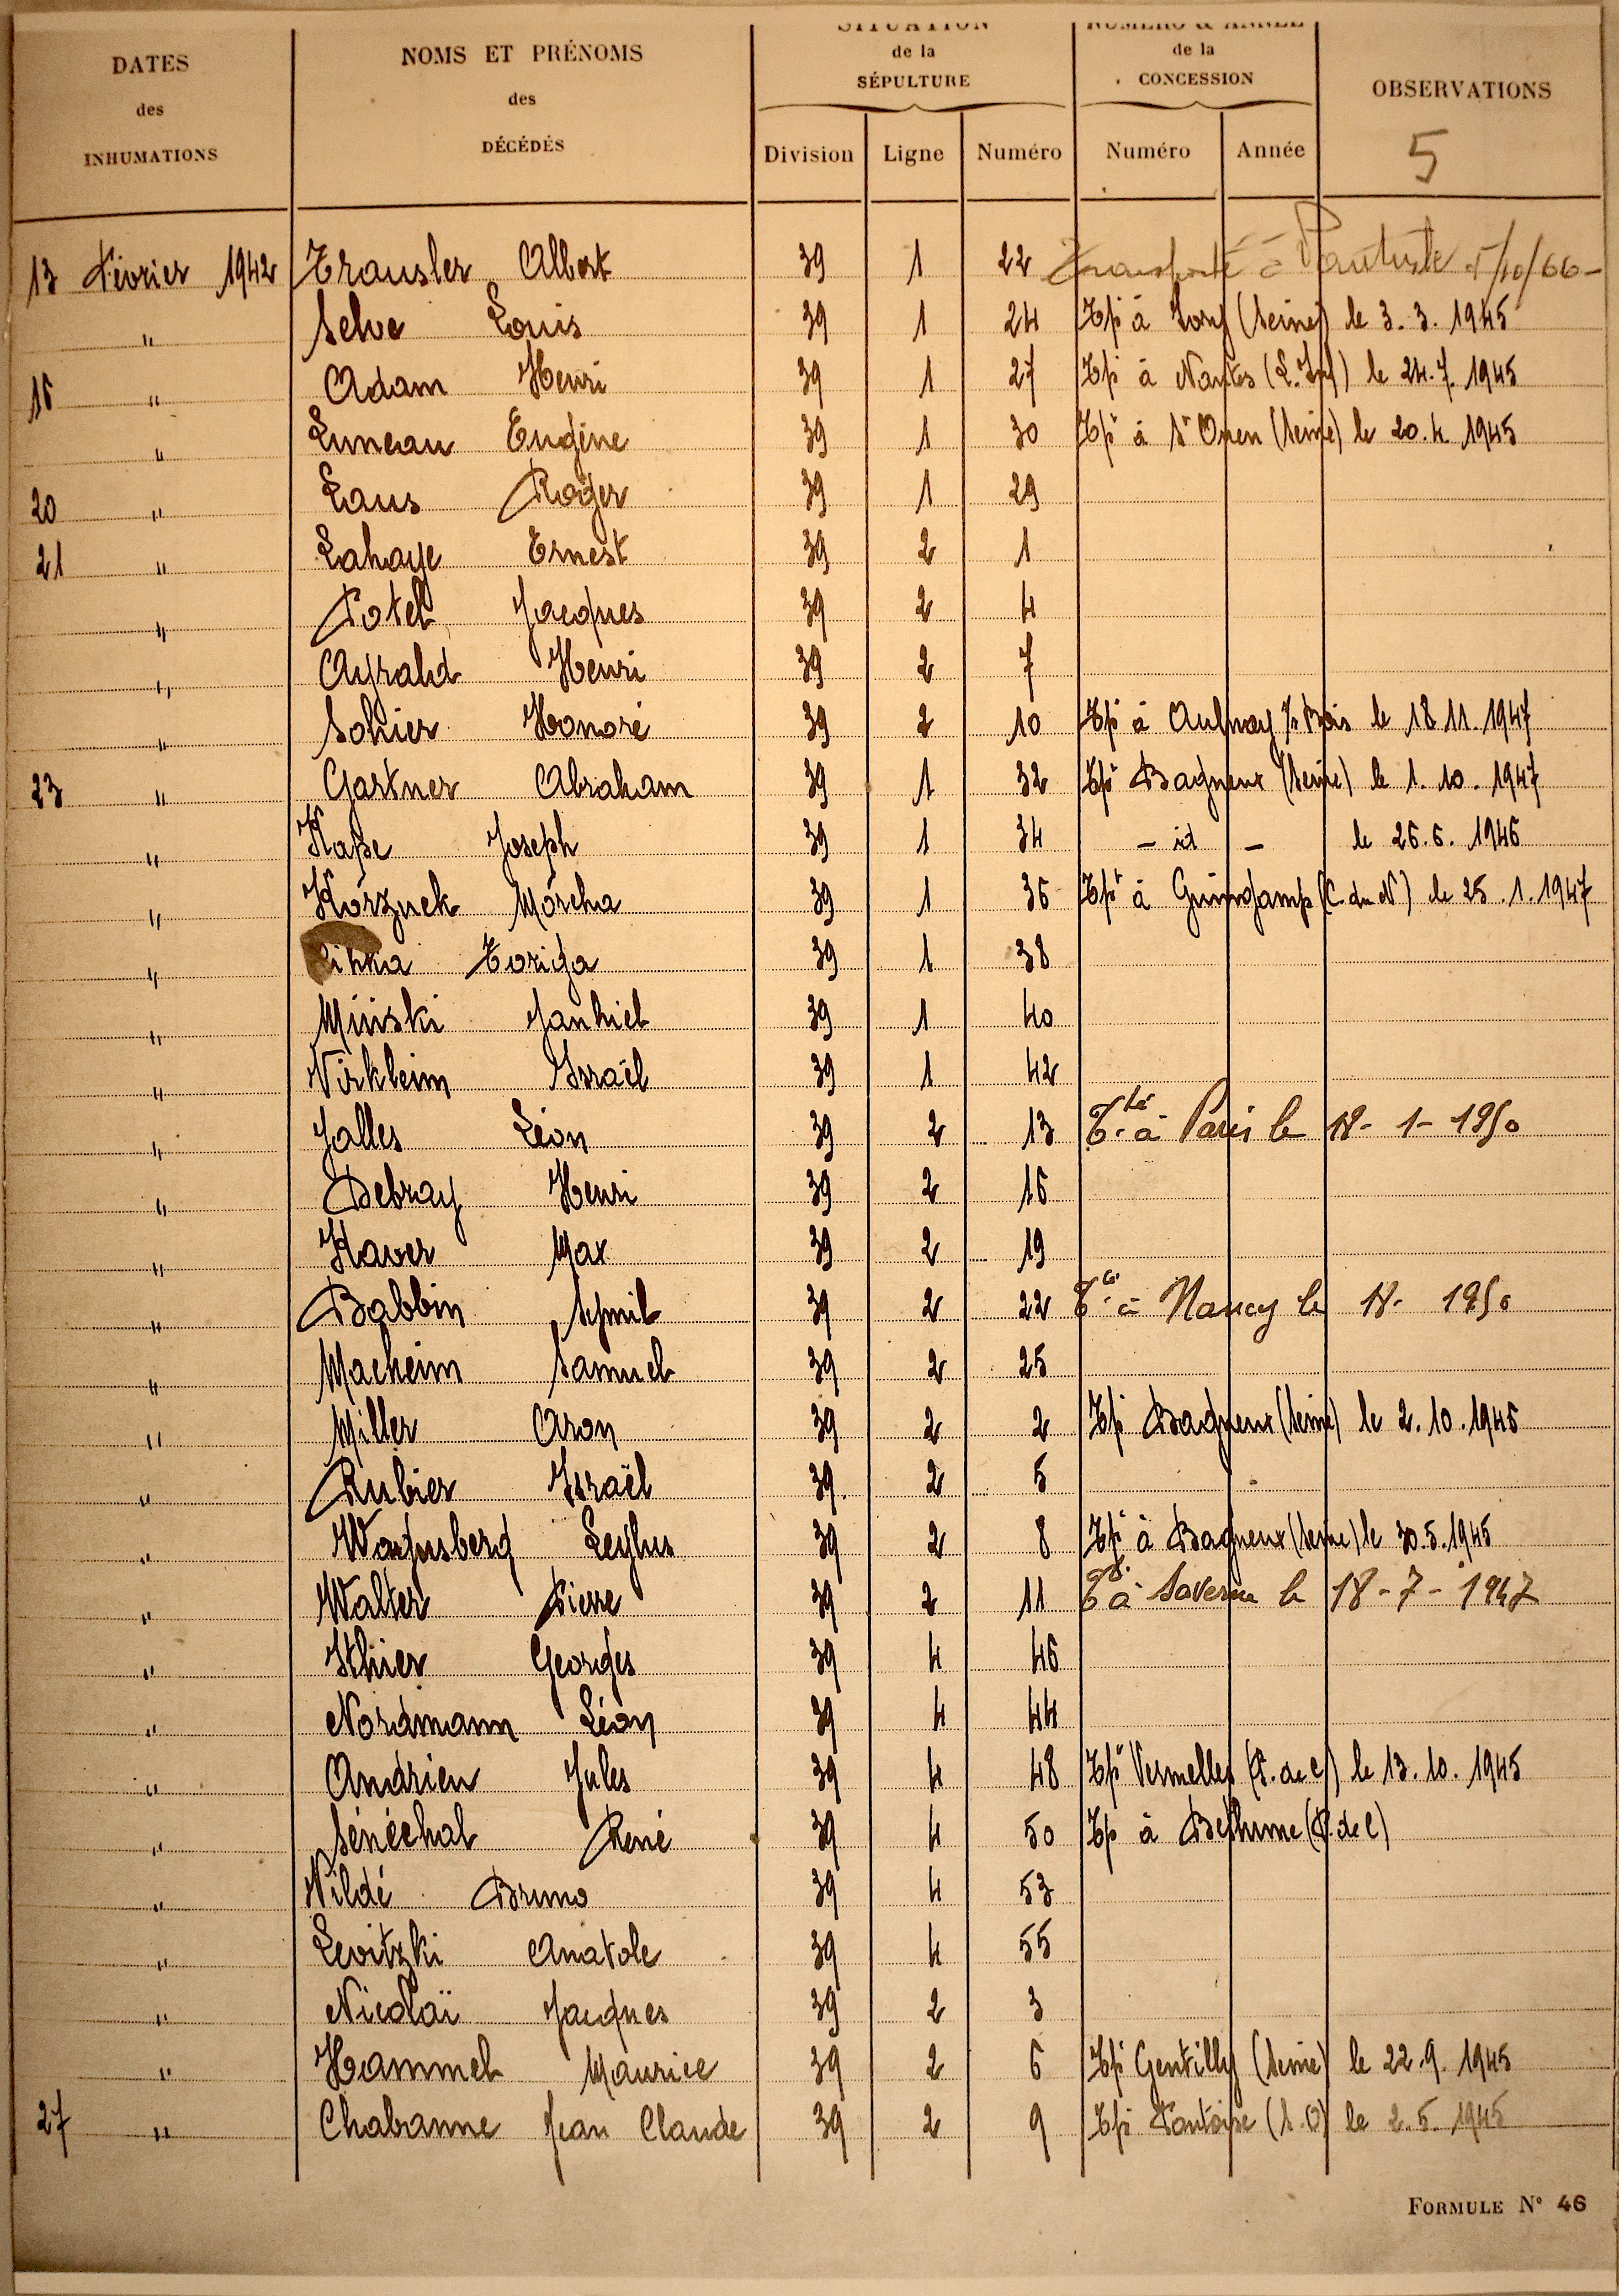 DATES des INHUMATIONS
NOMS ET PRÉNOMS des DÉCÉDÉS
SITUATION de la SÉPULTURE
NUMÉRO & ANNÉE de la CONCESSION
OBSERVATIONS
5
Division Ligne Numéro Numéro Année
13 Février 1942 Trausler Albert 39 1 22 Transporté à /10/66
" Selve Louis 39 1 24 Tpé à Ivry (Seine) le 3.3.1945
16 " Adam Henri 39 1 27 Tpé à Nantes (L. Inf) le 24.7.1945
" Luneau Eugène 39 1 30 Tpé à St Ouen (Seine) le 20.4.1945
20 " Laus Roger 39 1 29
21 " Lahaye Ernest 39 2 1
" Potel Jacques 39 2 4
" Ayrald Henri 39 2 7
" Sohier Honoré 39 2 10 Tpé à Aulnay s/s Bois le 18.11.1947
23 " Gartner Abraham 39 1 32 Tpé Bagneux (Seine) le 1.10.1947
" Kape Joseph 39 1 34 - id - le 26.6.1946
" Korzuck Morcha 39 1 36 Tpé à Guingamp (C. du N) le 25.1.1947
" Toriga 39 1 38
" Minski Jankiel 39 1 40
" Nirkleim Israël 39 1 42
" Jolles Léon 39 2 13 Tté à Paris le 18-1-1950
" Debray Henri 39 2 16
" Haver Max 39 2 19
" Babbin Schmil 39 2 22 Tté à Nancy le 18- 1950
" Macheim Samuel 39 2 25
" Miller Aron 39 2 2 Tpé Bagneux (Seine) le 2.10.1945
" Rubier Israël 39 2 5
" Wagnsberg Leylus 39 2 8 Tpé à Bagneux (Seine) le 30.5.1945
" Walter Pierre 39 2 11 Té à Saverne le 18-7-1947
" Ithier Georges 39 4 46
" Nordmann Léon 39 4 44
" Andrieu Jules 39 4 48 Tpé Vermelles (P. de C) le 13.10.1945
" Sénéchal René 39 4 50 Tpé à Béthune (P. de C)
" Vildé Bruno 39 4 53
" Levitzki Anatole 39 4 55
" Nicolaï Jacques 39 2 3
" Hammel Maurice 39 2 6 Tpé Gentilly (Seine) le 22.9.1945
27 " Chabanne Jean Claude 39 2 9 Tpé Pontoise (S.O) le 2.5.1945
FORMULE N° 46